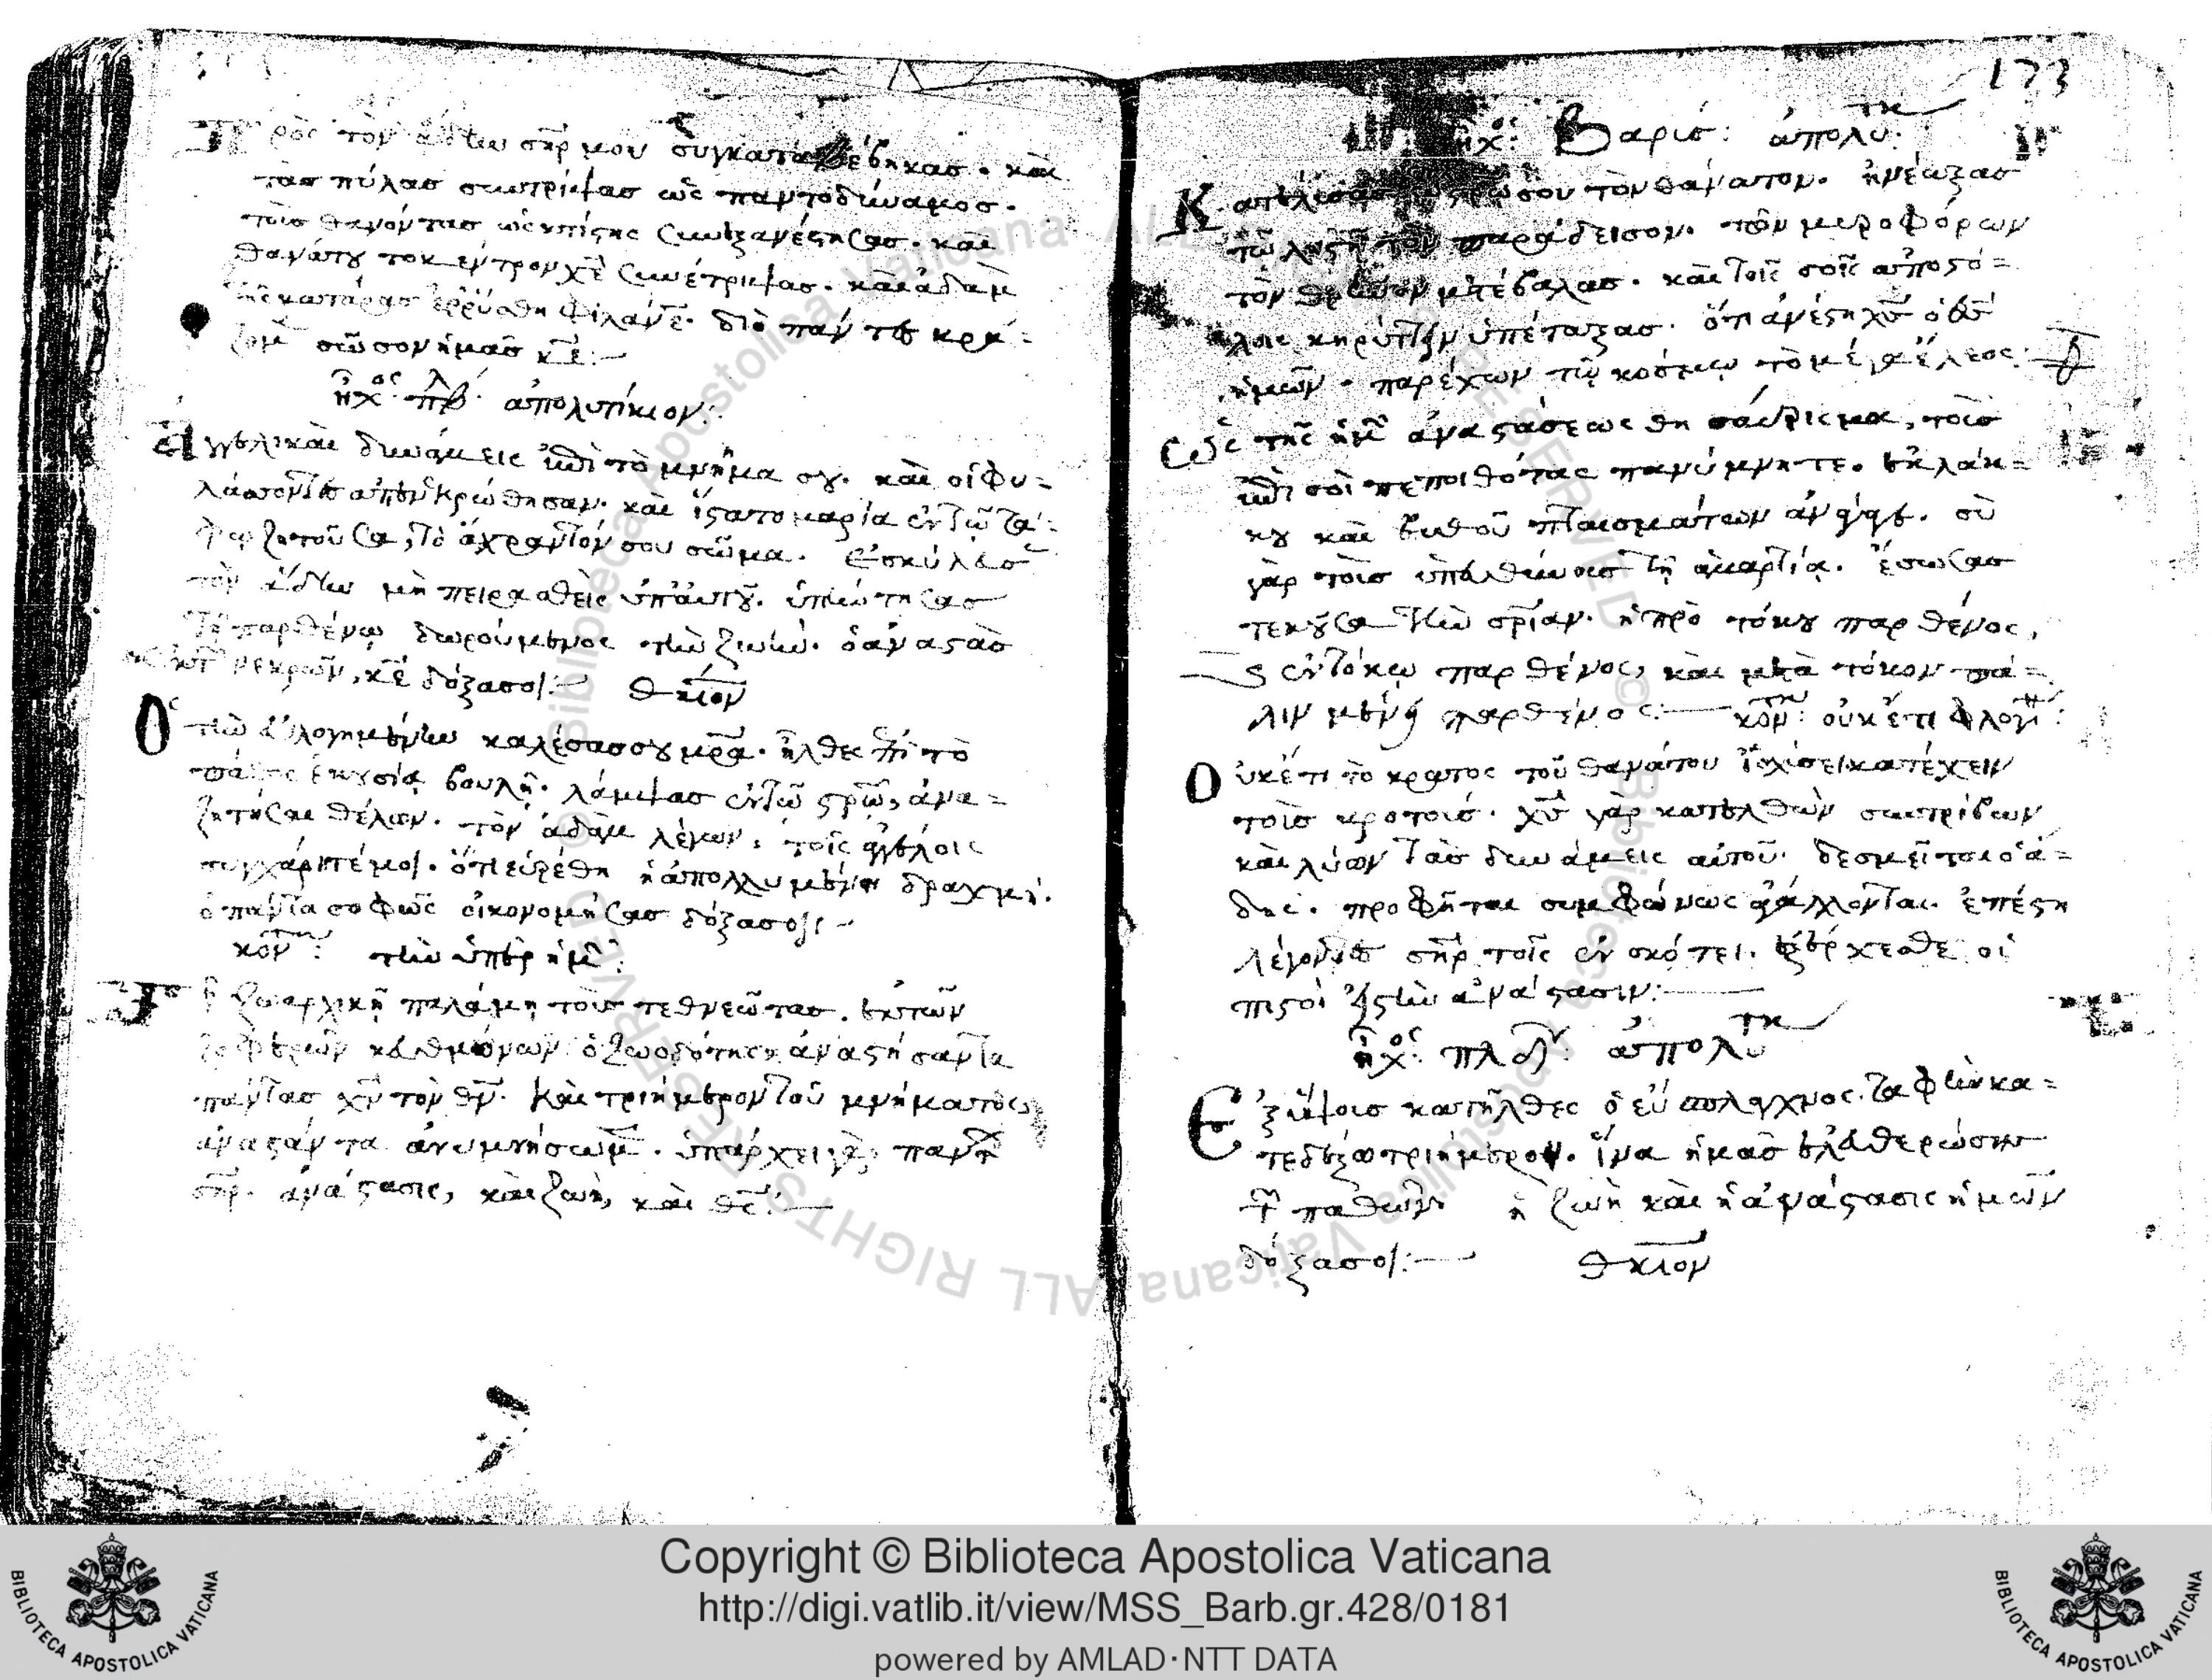 Πρὸς τὸν ἅδην σ̅ηρ μου συγκαταβέβηκας· καὶ
τὰς πύλας συντρίψας ὡς παντοδύναμος·
τοὺς θανόντας ὡς κτίστης συνεξανέστησας· καὶ
θανάτου τὸ κέντρον χ̅ε συνέτριψας· καὶ ἀδὰμ
τῆς κατάρας ἐρρύσθη φιλάν̅ε· διὸ πάντες κρά-
ζομ̅ σῶσον ἡμᾶς κ̅ε:
ἦχος πλ β· ἀπολυτίκιον:
Ἀγγελικαὶ δυνάμεις ἐπὶ τὸ μνῆμα σου· καὶ οἱ φυ-
λάσσοντες ἀπενεκρώθησαν· καὶ ἵστατο μαρία ἐν τῷ τά-
φῳ ζητοῦσα, τὸ ἄχραντόν σου σῶμα· ἐσκύλευσ
τὸν ἅδην μὴ πειρασθεὶς ὑπ' αὐτοῦ· ὑπήντησας
τῇ παρθένῳ δωρούμενος τὴν ζωήν· ὁ ἀναστὰς
νεκρῶν, κ̅ε δόξα σοι:— θ̅κίον
Ὁ τὴν εὐλογημένην καλέσας σου μ̅ρα· ἦλθες ἐπὶ τὸ
πάθος ἑκουσίᾳ βουλῇ· λάμψας ἐν τῷ στρῶ, ἀνα-
ζητῆσαι θέλων· τὸν ἀδὰμ λέγων, τοῖς ἀγγέλοις
συγχάρητέ μοι· ὅτι εὑρέθη ἡ ἀπολλυμένη δραχμή·
ὁ πάντα σοφῶς οἰκονομήσας δόξα σοι:
κον: τὴν ὑπὲρ ἡμ̅:
Τῇ ζωαρχικῇ παλάμῃ τοὺς τεθνεῶτας, ἐκ τῶν
ζοφερῶν κευθμώνων ὁ ζωοδότης ἀναστήσαντα
πάντας χ̅ν τὸν θ̅ν· καὶ τριήμερον τοῦ μνήματος
ἀναστάντα ἀνυμνήσωμ̅· ὑπάρχει γὰρ παντ̅
σ̅ηρ· ἀνάστασις, καὶ ζωή, καὶ θ̅ς:
173
ἦχος: Βαρύς: ἀπολυτκ
Κατέλυσας τῷ στ̅ρῷ σου τὸν θάνατον· ἠνέωξας
τῷ λῃστῇ τὸν παράδεισον· τῶν μυροφόρων
τὸν θρῆνον μετέβαλας· καὶ τοῖς σοῖς ἀποστό-
λοις κηρύττειν ὑπέταξας· ὅτι ἀνέστη χ̅ς ὁ θ̅ς
ἡμῶν· παρέχων τῷ κόσμῳ τὸ μέγα ἔλεος:
Ὡς τῆς ἡμ̅ ἀναστάσεως θησαύρισμα, τοὺς
ἐπὶ σοὶ πεποιθότας πανύμνητε· ἐκ λάκ-
κου καὶ βυθοῦ πταισμάτων ἀνάγαγε· σὺ
γὰρ τοὺς ὑπευθύνους τῇ ἁμαρτίᾳ· ἔσωσας
τεκοῦσα τὴν σ̅ριαν· ἡ πρὸ τόκου παρθένος,
ς ἐν τόκῳ παρθένος, καὶ μετὰ τόκον πά-
λιν μένεις παρθένος:— κον: οὐκέτι φλογι:
Οὐκέτι τὸ κράτος τοῦ θανάτου ἰσχύσει κατέχειν
τοὺς βροτούς· χ̅ς γὰρ κατελθὼν συντρίβων
καὶ λύων τὰς δυνάμεις αὐτοῦ· δεσμεῖται ὁ ἅ-
δης· προφῆται συμφώνως ἀγάλλονται· ἐπέστη
λέγοντες σ̅ηρ τοῖς ἐν σκότει· ἐξέρχεσθε οἱ
πιστοὶ εἰς τὴν ἀνάστασιν:
ἦχος: πλ δ: ἀπολυτκ
Ἐξ ὕψους κατῆλθες ὁ εὔσπλαγχνος· ταφὴν κα-
τεδέξω τριήμερον· ἵνα ἡμᾶς ἐλευθερώσῃς
τ̅ παθῶν· ἡ ζωὴ καὶ ἡ ἀνάστασις ἡμῶν
δόξα σοι:— θ̅κίον
Copyright © Biblioteca Apostolica Vaticana
http://digi.vatlib.it/view/MSS_Barb.gr.428/0181
powered by AMLAD·NTT DATA